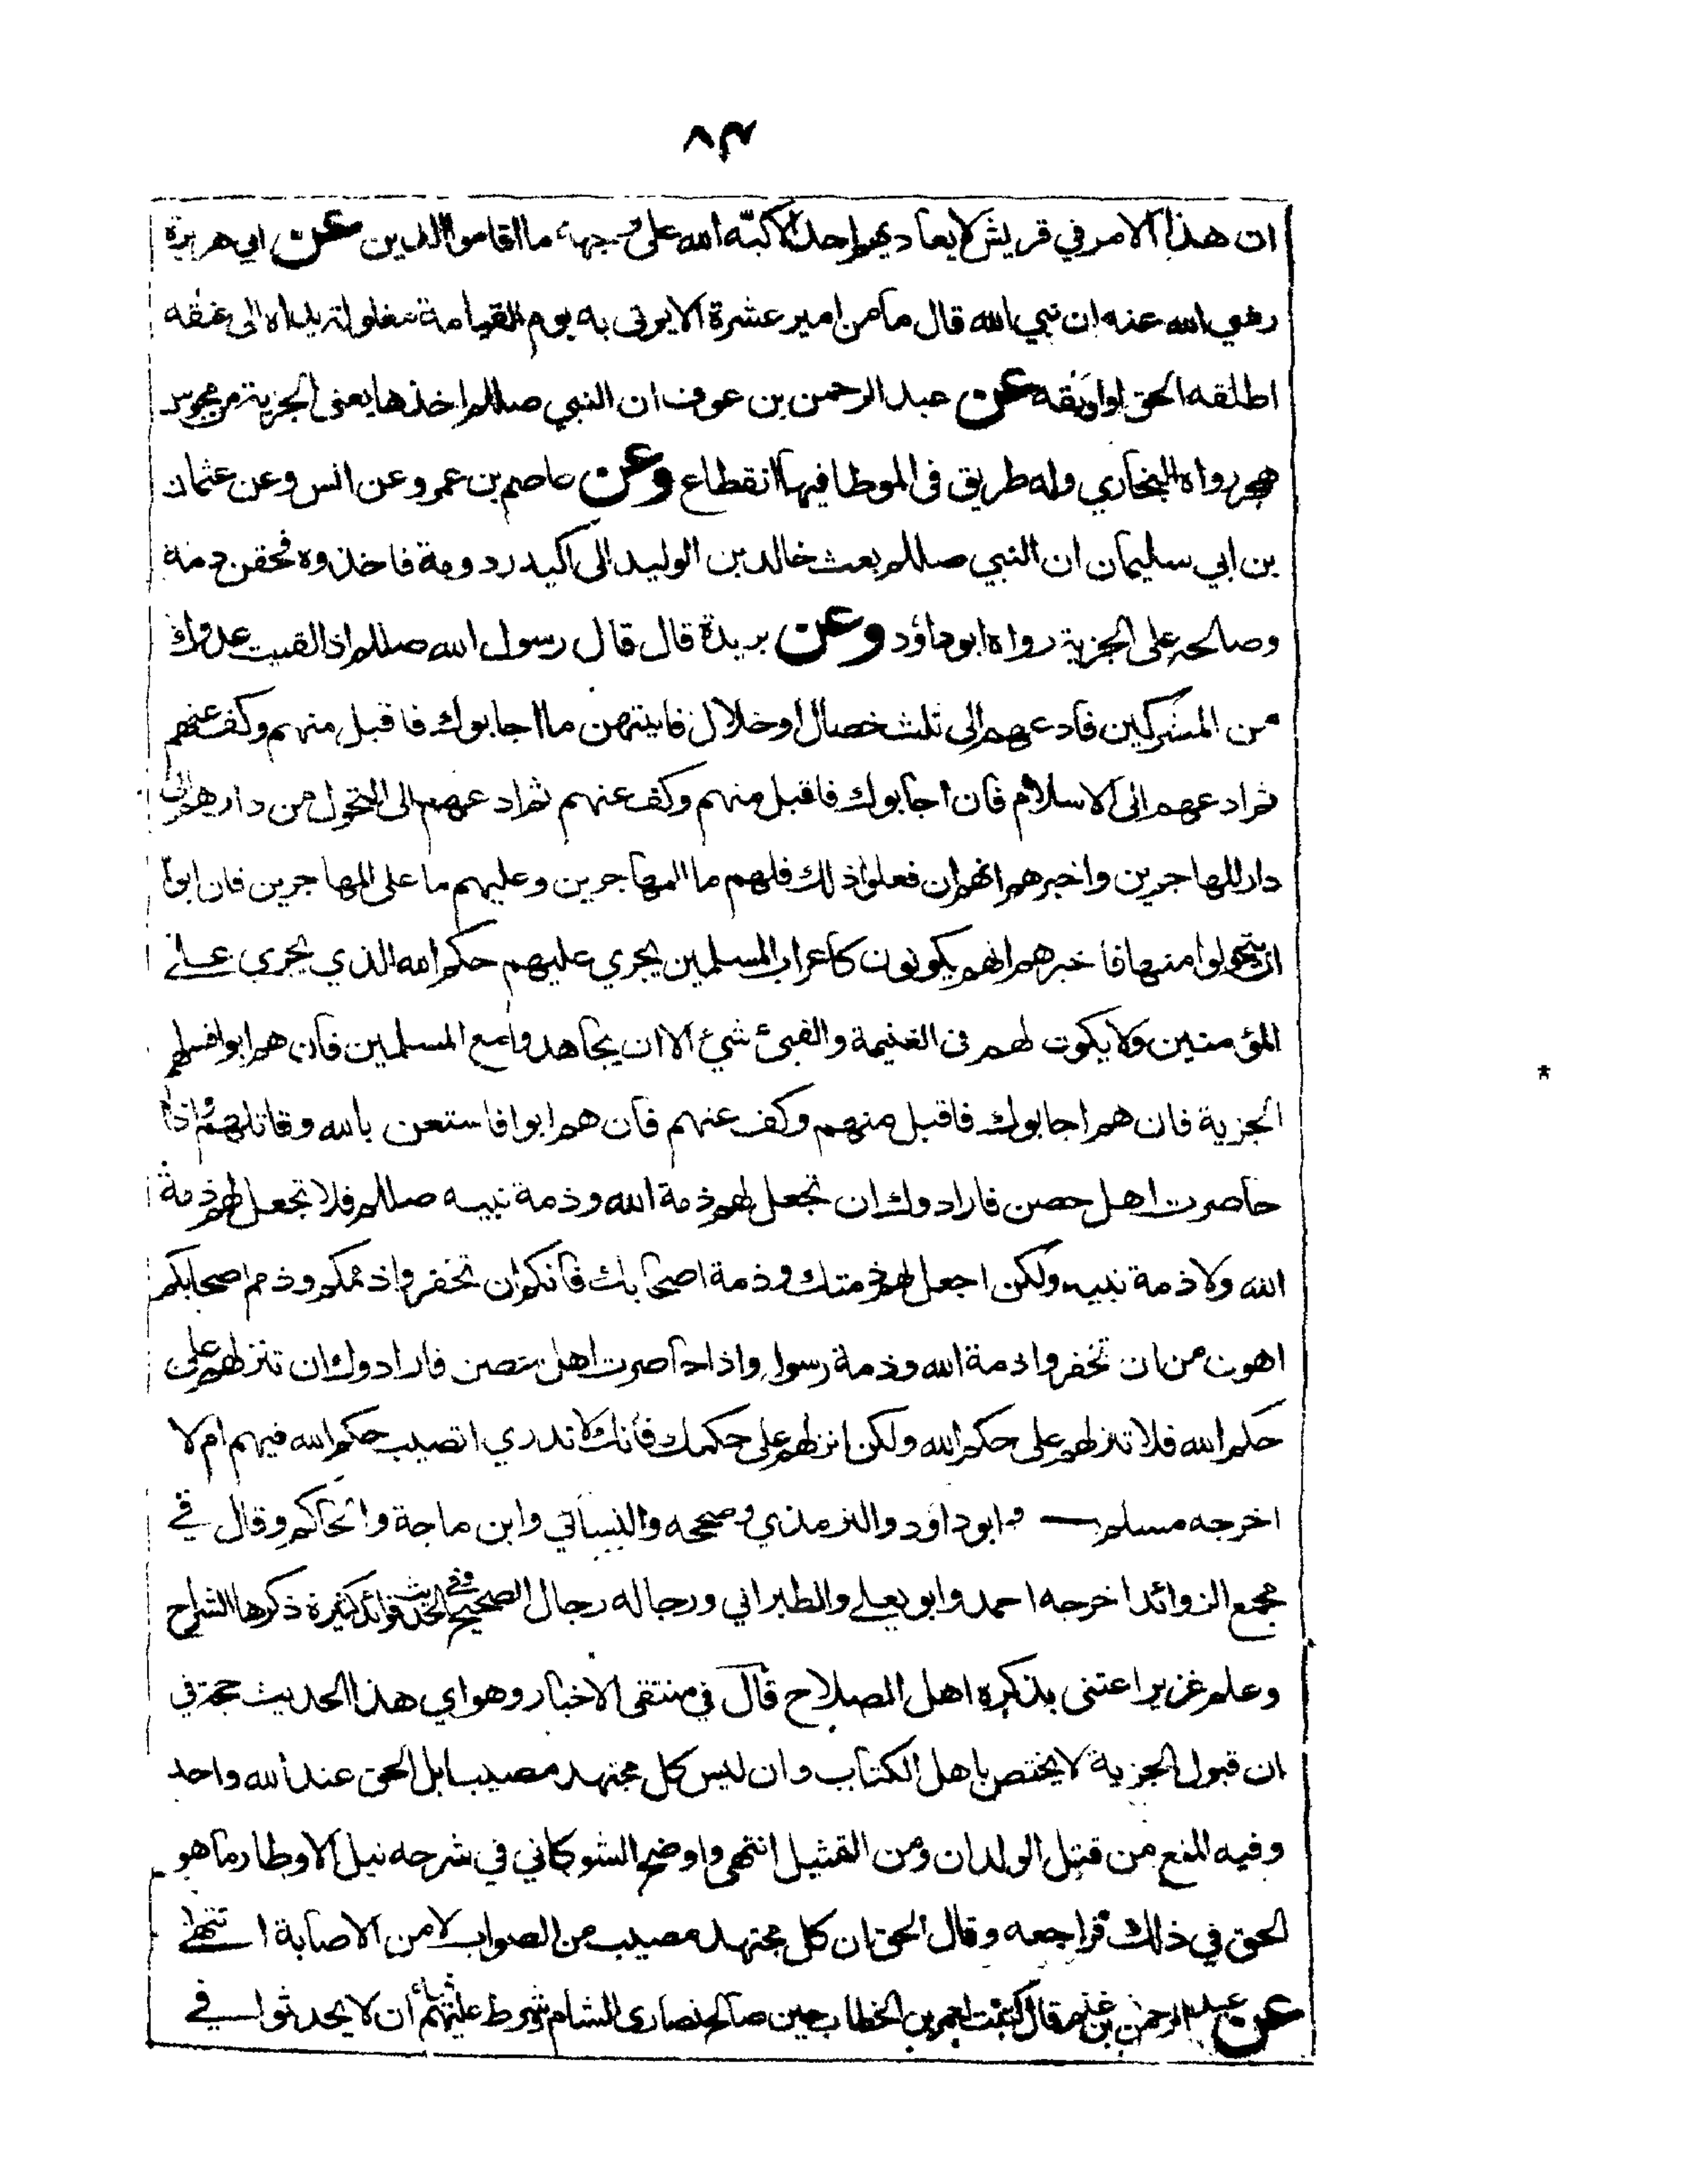 ٨٣
ان هذا الامر في قريش لا يعاديهم احد الا كبّه الله على وجهه ما اقاموا الدين عن ابي هريرة
رضي الله عنه ان نبي الله قال ما من امير عشرة الا يوتى به يوم القيامة مغلولة يداه الى عنقه
اطلقه الحق او اوثقه عن عبد الرحمن بن عوف ان النبي صللم اخذها يعنى الجزية من مجوس
هجر رواه البخاري وله طريق فى الموطا فيها انقطاع وعن عاصم بن عمر وعن انس وعن عثمان
بن ابي سليمان ان النبي صللم بعث خالد بن الوليد الى اكيدر دومة فاخذوه فحقن دمه
وصالحه على الجزية رواه ابو داؤد وعن بريدة قال قال رسول الله صللم اذا لقيت عدوك
من المشركين فادعهم الى ثلث خصال او خلال فايتهن ما اجابوك فاقبل منهم وكف عنهم
ثم ادعهم الى الاسلام فان اجابوك فاقبل منهم وكف عنهم ثم ادعهم الى التحول من دارهم الى
دار المهاجرين واخبرهم انهم ان فعلوا ذلك فلهم ما للمهاجرين وعليهم ما على المهاجرين فان ابوا
ان يتحولوا منها فاخبرهم انهم يكونون كاعراب المسلمين يجري عليهم حكم الله الذي يجري على
المؤمنين ولا يكون لهم فى الغنيمة والفيئ شيئ الا ان يجاهدوا مع المسلمين فان هم ابوا فسلهم
الجزية فان هم اجابوك فاقبل منهم وكف عنهم فان هم ابوا فاستعن بالله وقاتلهم واذا
حاصرت اهل حصن فارادوك ان تجعل لهم ذمة الله وذمة نبيه صللم فلا تجعل لهم ذمة
الله ولا ذمة نبيه ولكن اجعل لهم ذمتك وذمة اصحابك فانكم ان تخفروا ذممكم وذمم اصحابكم
اهون من ان تخفروا ذمة الله وذمة رسوله واذا حاصرت اهل حصن فارادوك ان تنزلهم على
حكم الله فلا تنزلهم على حكم الله ولكن انزلهم على حكمك فانك لا تدري اتصيب حكم الله فيهم ام لا
اخرجه مسلم وابو داؤد والترمذي وصححه والنسائي وابن ماجة والحاكم وقال في
مجمع الزوائد اخرجه احمد وابو يعلى والطبراني ورجاله رجال الصحيح وفي الحديث فوائد كثيرة ذكرها الشراح
وعلم غزير اعتنى بذكره اهل الصلاح قال في منتقى الاخبار وهو اي هذا الحديث حجة في
ان قبول الجزية لا يختص باهل الكتاب وان ليس كل مجتهد مصيبا بل الحق عند الله واحد
وفيه المنع من قتل الولدان ومن التمثيل انتهى واوضح الشوكاني في شرحه نيل الاوطار ما هو
الحق في ذلك فراجعه وقال الحق ان كل مجتهد مصيب من الصواب لا من الاصابة انتهى
عن عبد الرحمن بن غنم قال كتبت لعمر بن الخطاب حين صالح نصارى الشام وشرط عليهم ان لا يحدثوا في
*